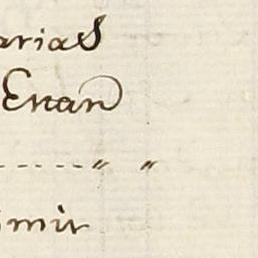 arias
Enan
------- " "
mir